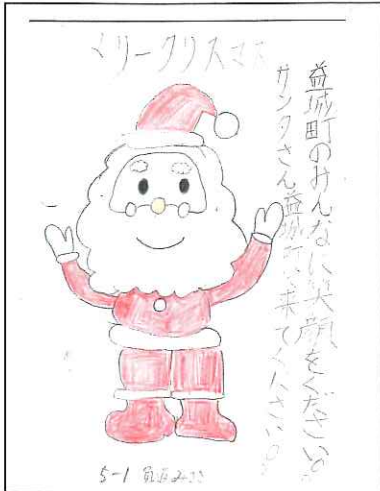 メリークリスマス
益城町のみんなに笑顔をください。
サンタさん益城町に来てください。
5-1